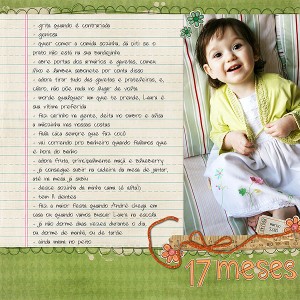 - grita quando é contrariada
- geniosa
- quer comer a comida sozinha, dá piti se o
prato não está na sua bandejinha
- abre portas dos armários e gavetas, comeu
Vivo e lambeu sabonete por conta disso
- adora tirar tudo das gavetas/prateleiras, e,
claro, não põe nada no lugar de volta
- morde qualquer um que te prende, Laura é
sua vítima preferida
- faz carinho na gente, deita no ombro e passa
a mãozinha nas nossas costas
- fala caca sempre que faz cocô
- vai correndo pro banheiro quando falamos que
é hora do banho
- adora fruta, principalmente maçã e blueberry
- já consegue subir na cadeira da mesa de jantar,
até na mesa já subiu
- desce sozinha da minha cama (é alta!)
- tem 11 dentes
- faz a maior festa quando André chega em
casa ou quando vamos buscar Laura na escola
- já não dorme duas vezes durante o dia
ou dorme de manhã, ou de tarde
- ainda mama no peito
17 meses